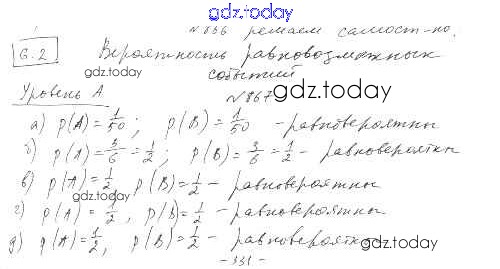 gdz.today
№866 решаем самост-но.
6.2 Вероятность равновозможных
gdz.today событий
Уровень А №867 gdz.today
а) p(A) = 1/50; p(B) = 1/50 - равновероятны
б) p(A) = 3/6 = 1/2; p(B) = 3/6 = 1/2 - равновероятны
в) p(A) = 1/2 p(B) = 1/2 - равновероятны
gdz.today
г) p(A) = 1/2, p(B) = 1/2 - равновероятны.
д) p(A) = 1/2, p(B) = 1/2 - равновероятны
gdz.today
- 331 -